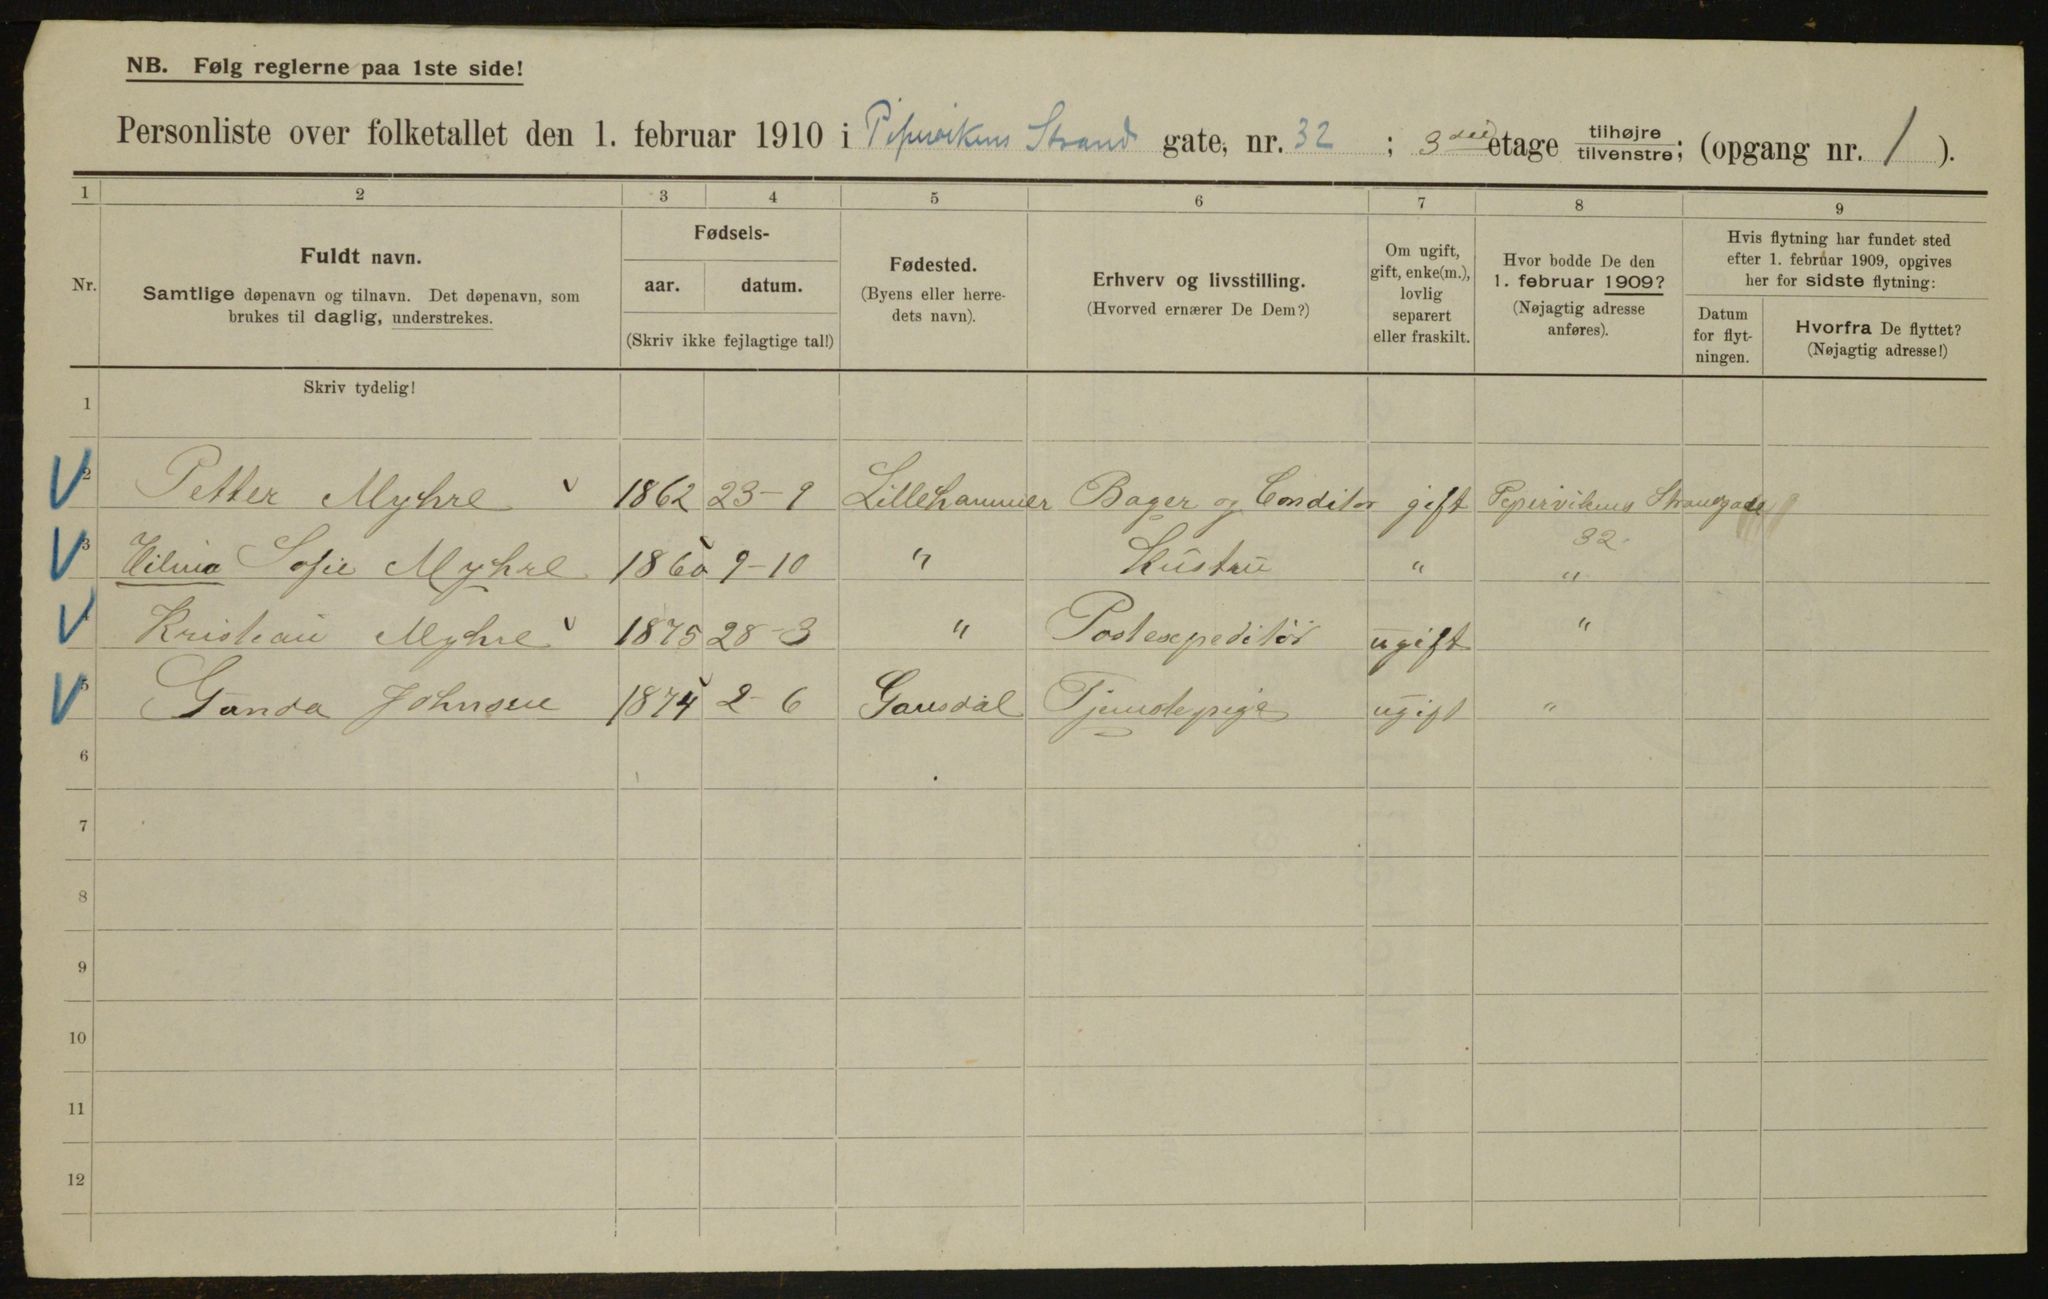 NB. Følg reglerne paa 1ste side!
Personliste over folketallet den 1. februar 1910 i Pipervikens Strand gate, nr. 32 ; 3die etage tilhøjre tilvenstre; (opgang nr. 1 ).
1 2 3 4 5 6 7 8 9
Nr.
Fuldt navn.
Samtlige døpenavn og tilnavn. Det døpenavn, som
brukes til daglig, understrekes.
Fødsels-
aar. datum.
(Skriv ikke fejlagtige tal!)
Fødested.
(Byens eller herre-
dets navn).
Erhverv og livsstilling.
(Hvorved ernærer De Dem?)
Om ugift,
gift, enke(m.),
lovlig
separert
eller fraskilt.
Hvor bodde De den
1. februar 1909?
(Nøjagtig adresse
anføres).
Hvis flytning har fundet sted
efter 1. februar 1909, opgives
her for sidste flytning:
Datum
for flyt-
ningen.
Hvorfra De flyttet?
(Nøjagtig adresse!)
Skriv tydelig!
1
2 Petter Myhre 1862 23-9 Lillehammer Bager og Conditor gift Pepervikens Strandgade
32
3 Sofie Myhre 1860 9-10 " Hustru " "
4 Kristian Myhre 1875 28-3 " Postexpeditör ugift "
5 Gunda Johnsen 1874 2-6 Gausdal Tjenstepige ugift "
6
7
8
9
10
11
12